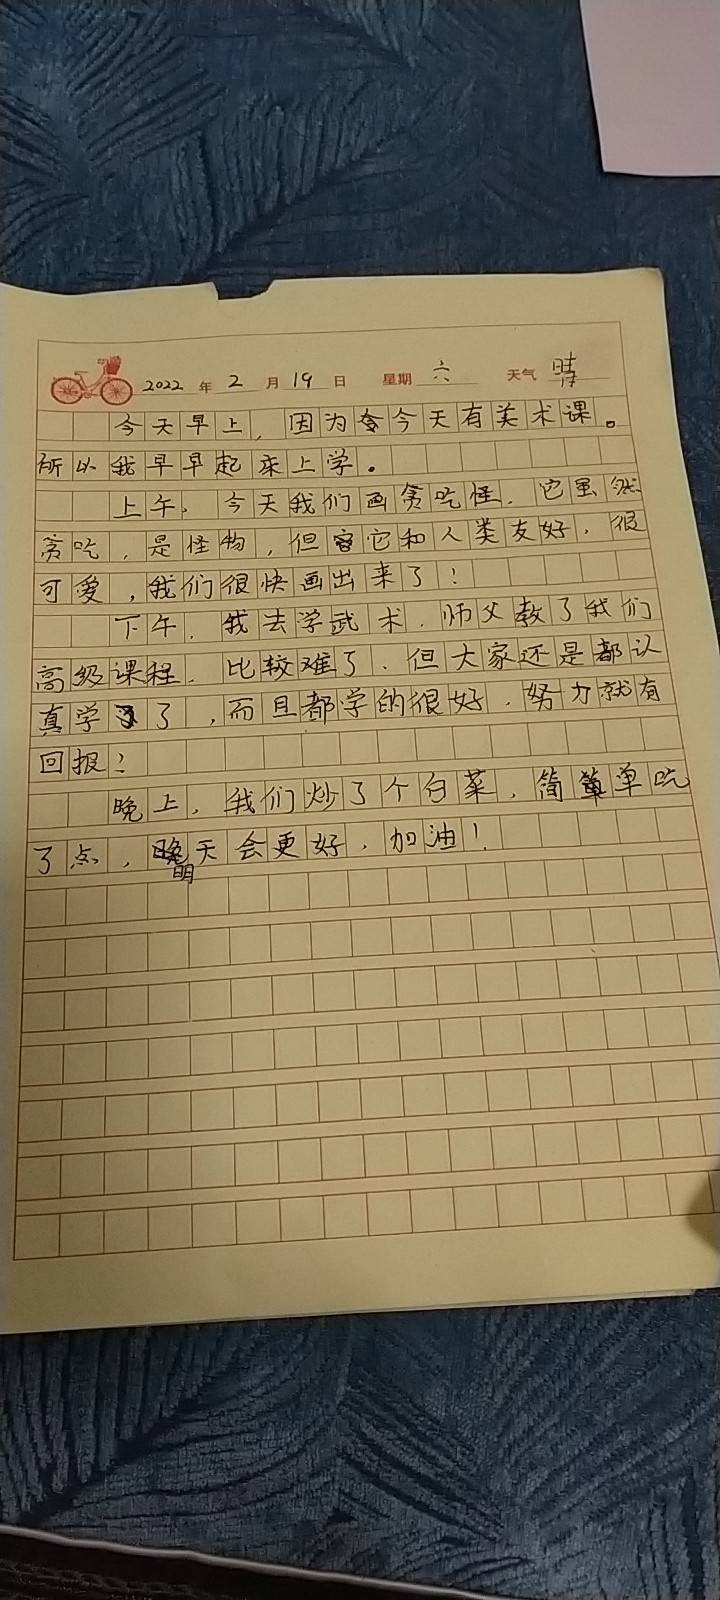 2022 年 2 月 19 日 星期 六 天气 晴
今天早上，因为今天有美术课。
所以我早早起来上学。
上午，今天我们画贪吃怪，它虽然
贪吃，是怪物，但它和人类友好，很
可爱，我们很快画出来了！
下午，我去学武术，师父教了我们
高级课程，比较难了，但大家还是都认
真学了，而且都学的很好，努力就有
回报！
晚上，我们炒了个白菜，简单吃
了点，明天会更好，加油！